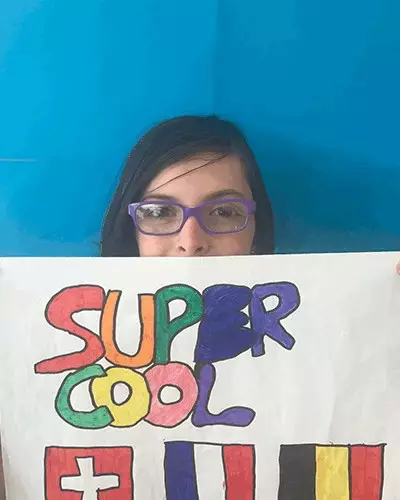 SUPER
COOL